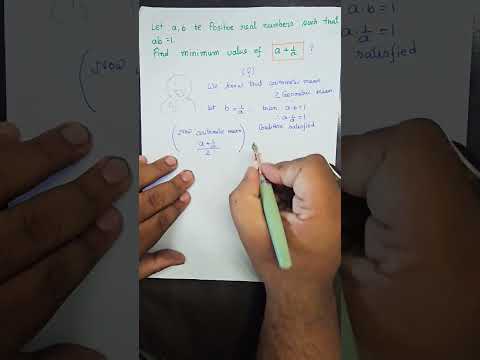 Let a,b be Positive real numbers such that
ab = 1.
Find minimum value of a + 1/a ?
We know that arithmetic mean
≥ Geometric mean
let b = 1/a then a·b = 1
a·1/a = 1
Now arithmetic mean Condition satisfied
(a + 1/a)/2
Now
a·b = 1
a·1/a = 1
satisfied